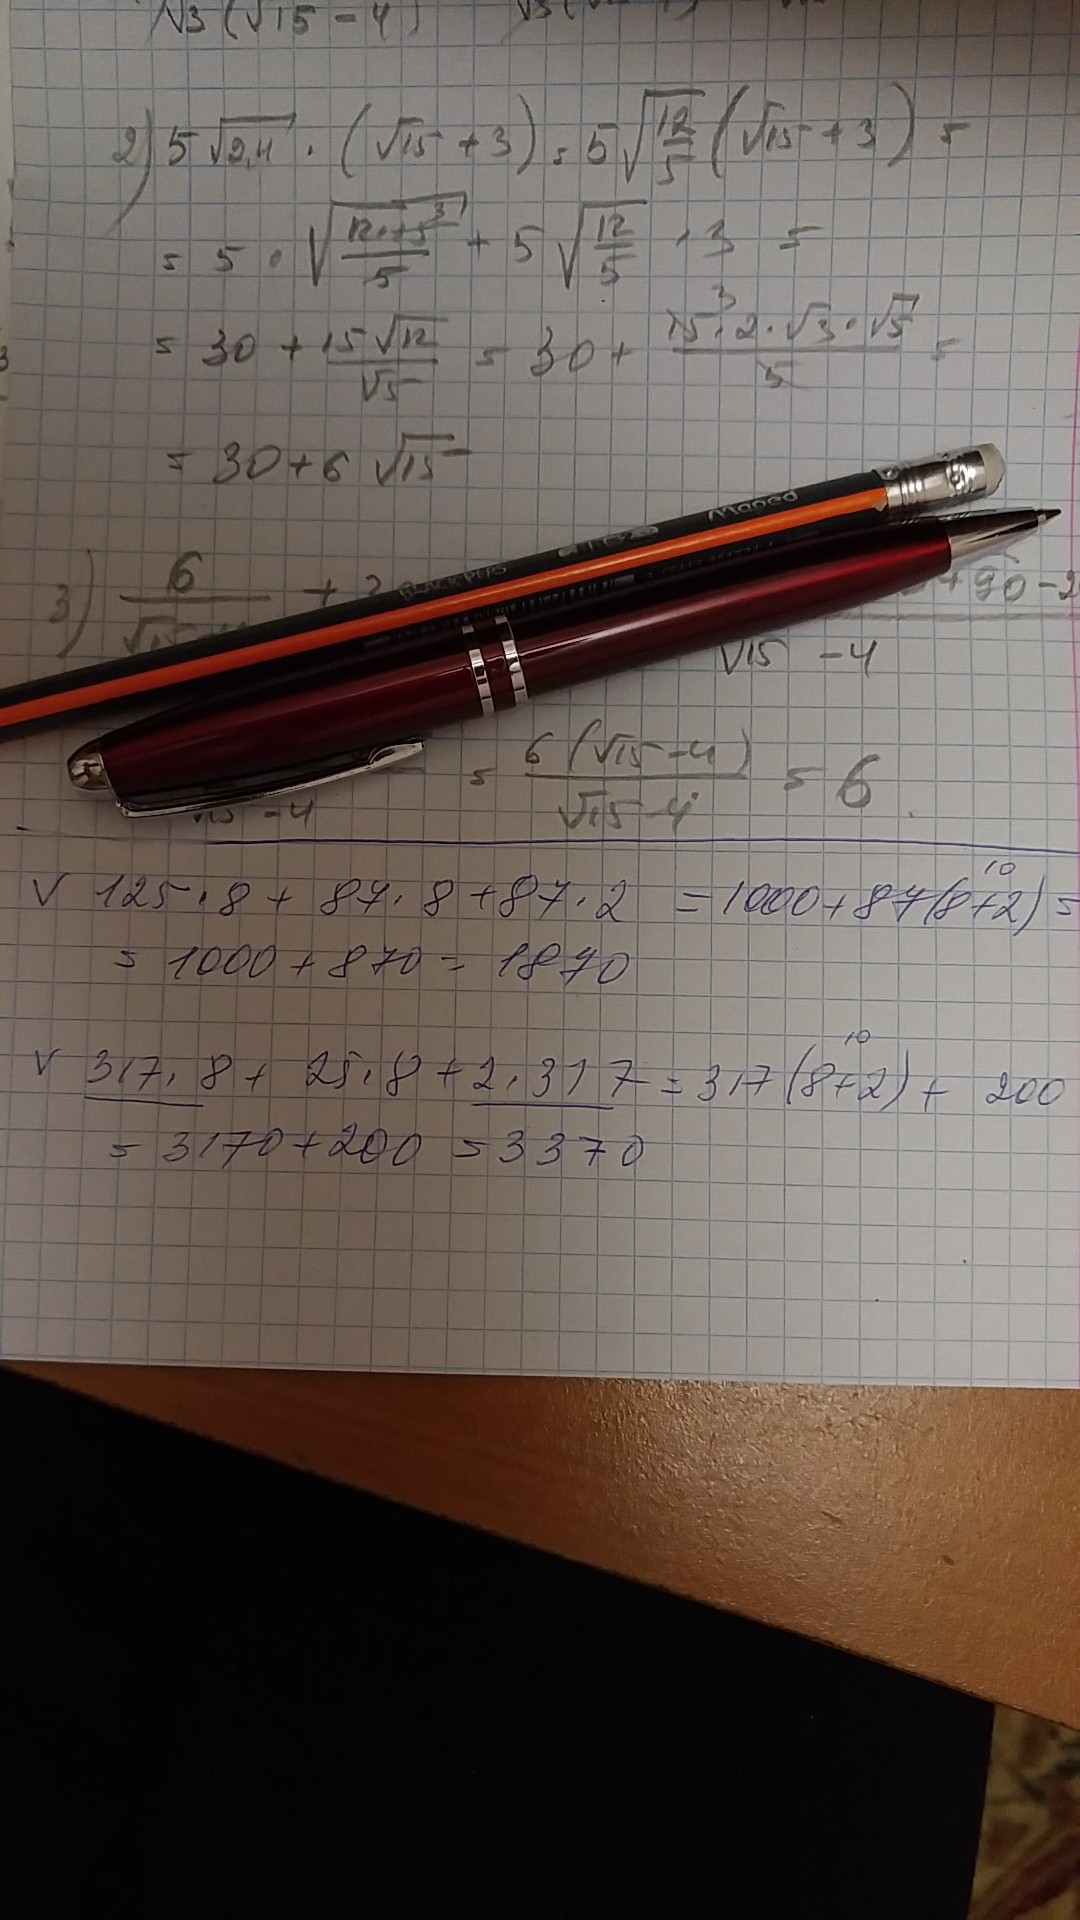 √3 (√15 - 4)
2) 5√2,4 · (√15 + 3) = 5√12/5 (√15 + 3) =
= 5 · √12·15³/5 + 5√12/5 · 3 =
= 30 + 15√12/√5 = 30 + 15³·2·√3·√5/5 =
= 30 + 6√15
Maped
BLACK'PEPS
3) 6/√15 +
+ 90 - 2
√15 - 4
= 6(√15 - 4)/√15 - 4 = 6
- 4
V 125·8 + 87·8 + 87·2 = 1000 + 87(8+2) =
10
= 1000 + 870 = 1870
V 317·8 + 25·8 + 2·317 = 317(8+2) + 200
10
= 3170 + 200 = 3370